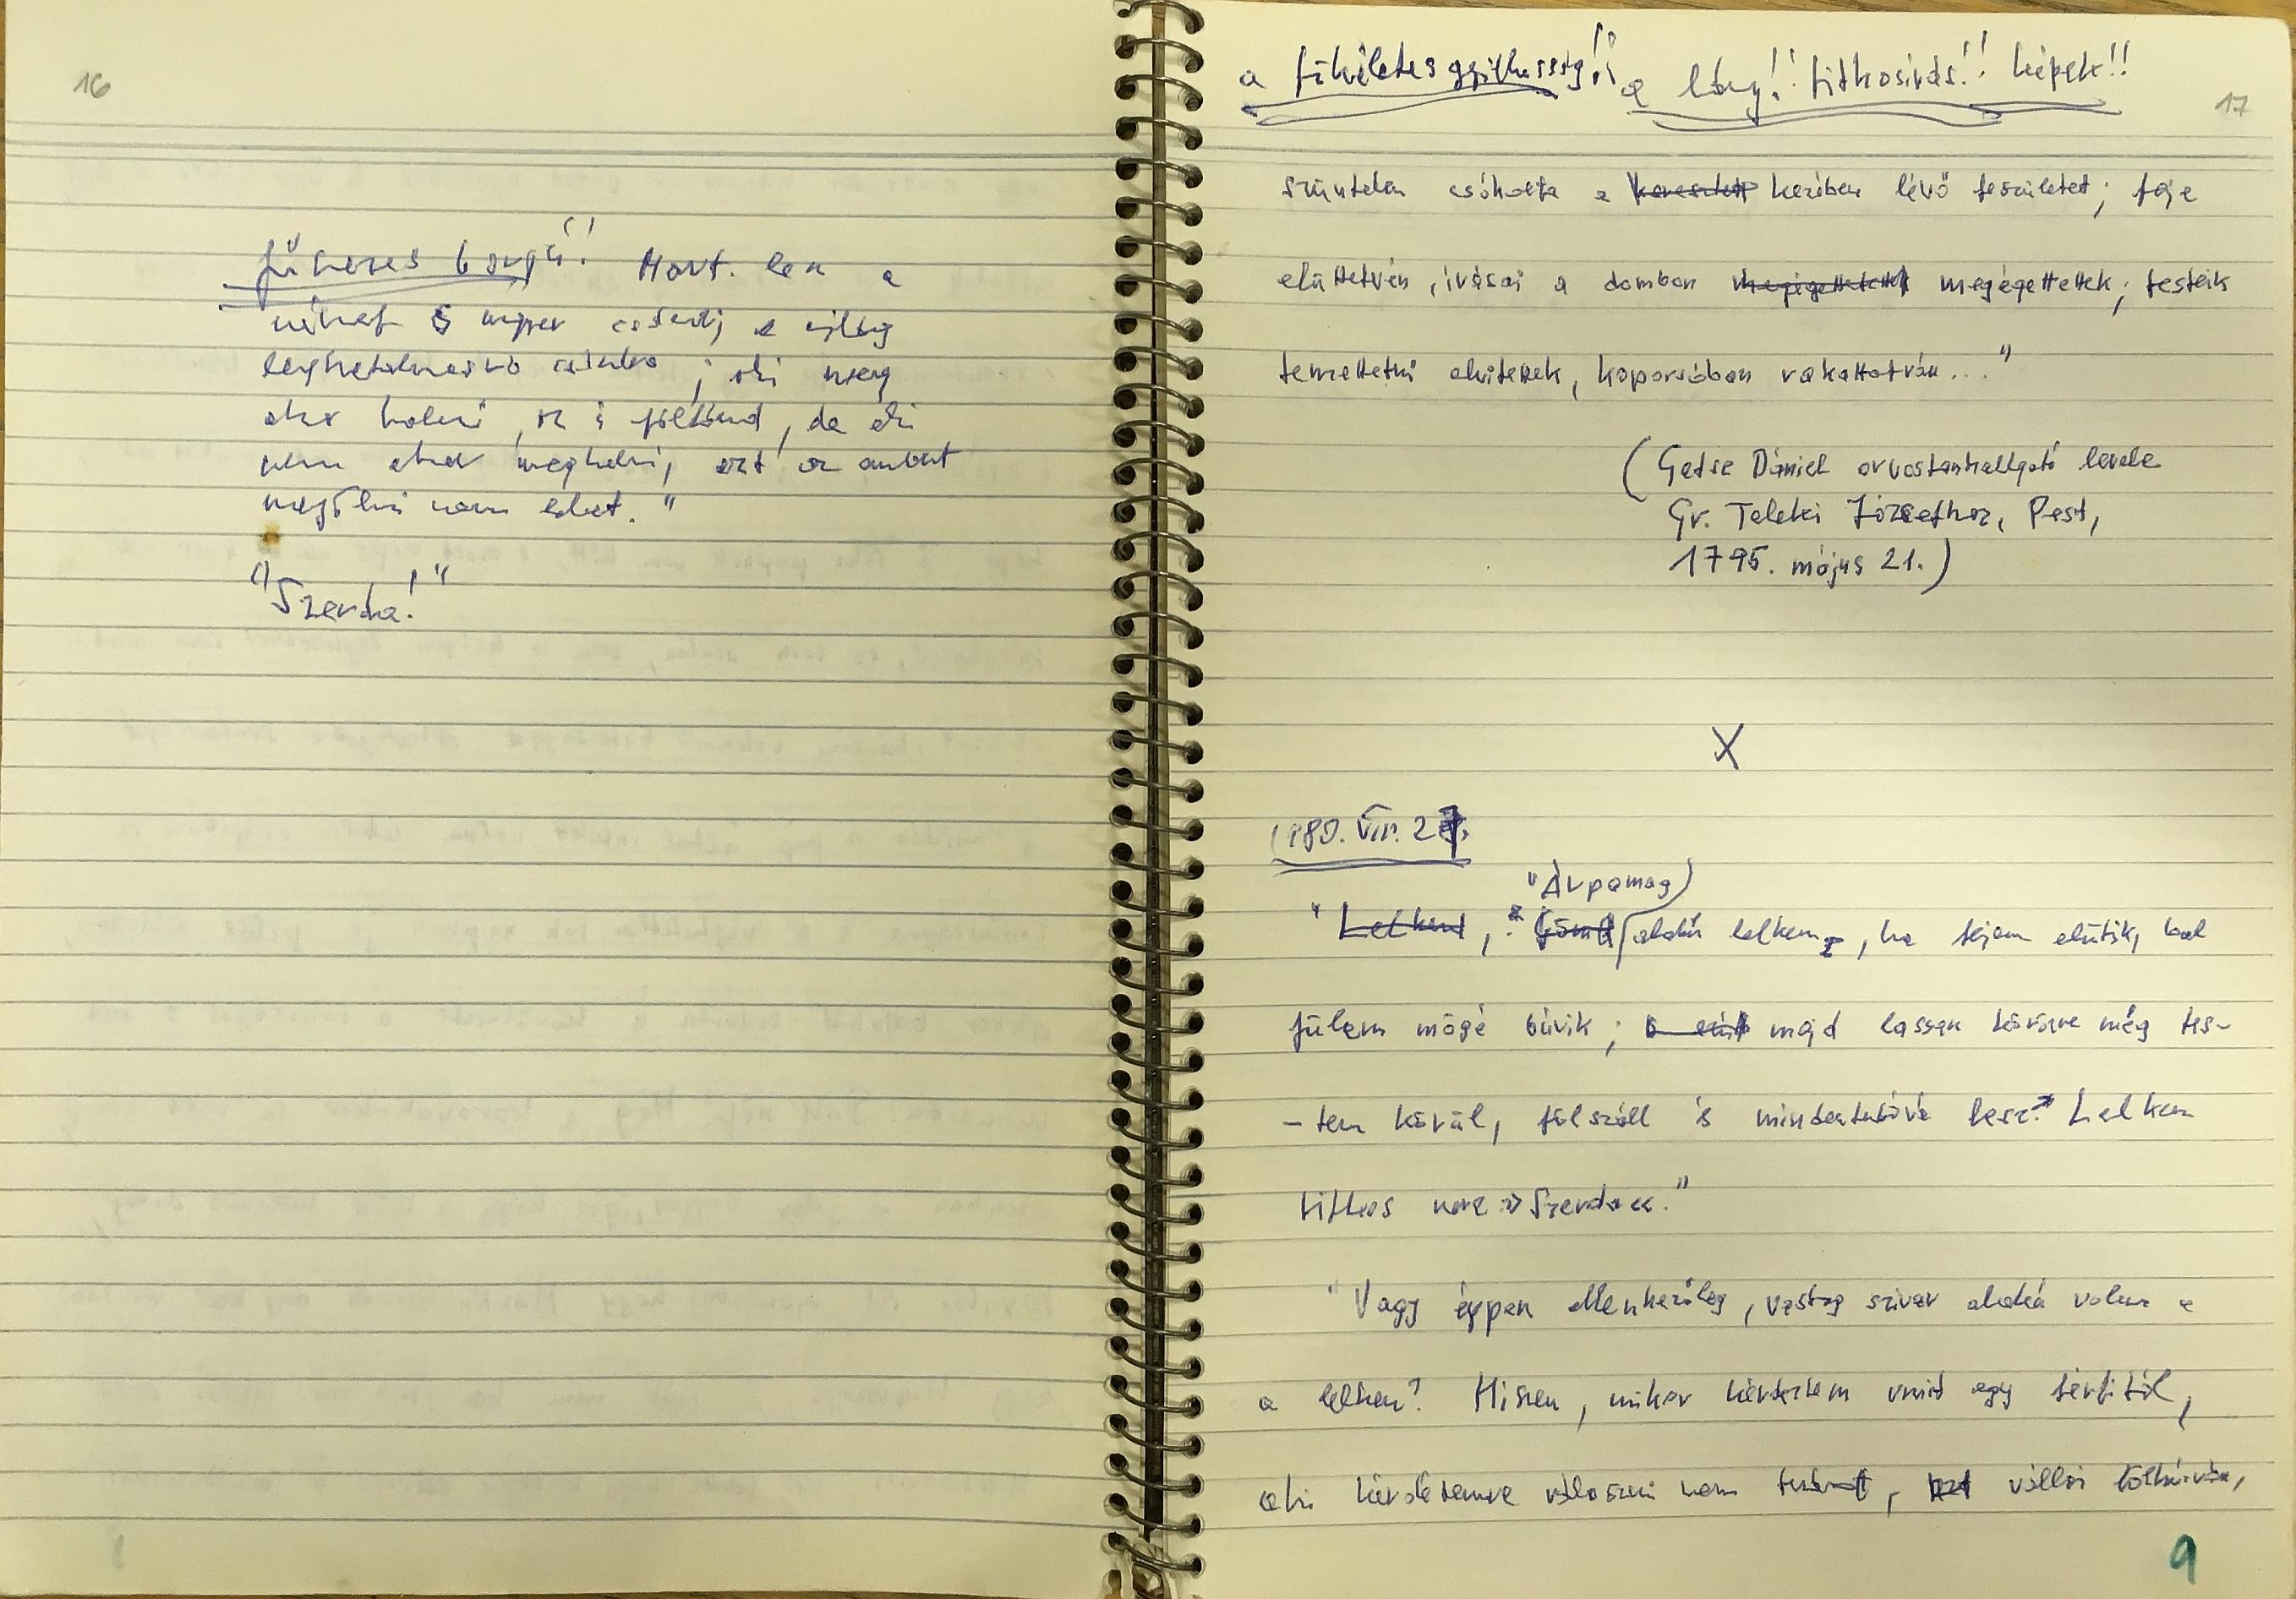 16
fűszeres bor
a
német s magyar császárt, a világ
meg
akar halni, és
nem akar meghalni, azt az embert
megölni nem lehet."
"Szerda!"
a tökéletes gyilkosság!! a lány!! titkosírás!! képek!!
17
szüntelen csókolta a kezében lévő feszületet; feje
elüttetvén, írásai a dombon megégettettek; testeik
temettetni elvitettek, koporsóban rakattatván..."
(Getse Dániel orvostanhallgató levele
Gr. Teleki Józsefhez, Pest,
1795. május 21.)
X
1980. VIII. 27.
"Árpamag
"Lelkem, alakú lelkem, ha fejem elütik, bal
fülem mögé búvik; majd lassan körözve még tes-
-tem körül, fölszáll és mindentudóvá lesz. Lelkem
titkos neve »Szerda«."
"Vagy éppen ellenkezőleg, vastag szivar alakú volna a
a lelkem? Hiszen, mikor kérdeztem vmit egy férfitól,
aki kérdésemre válaszolni nem tudott, vállai
9